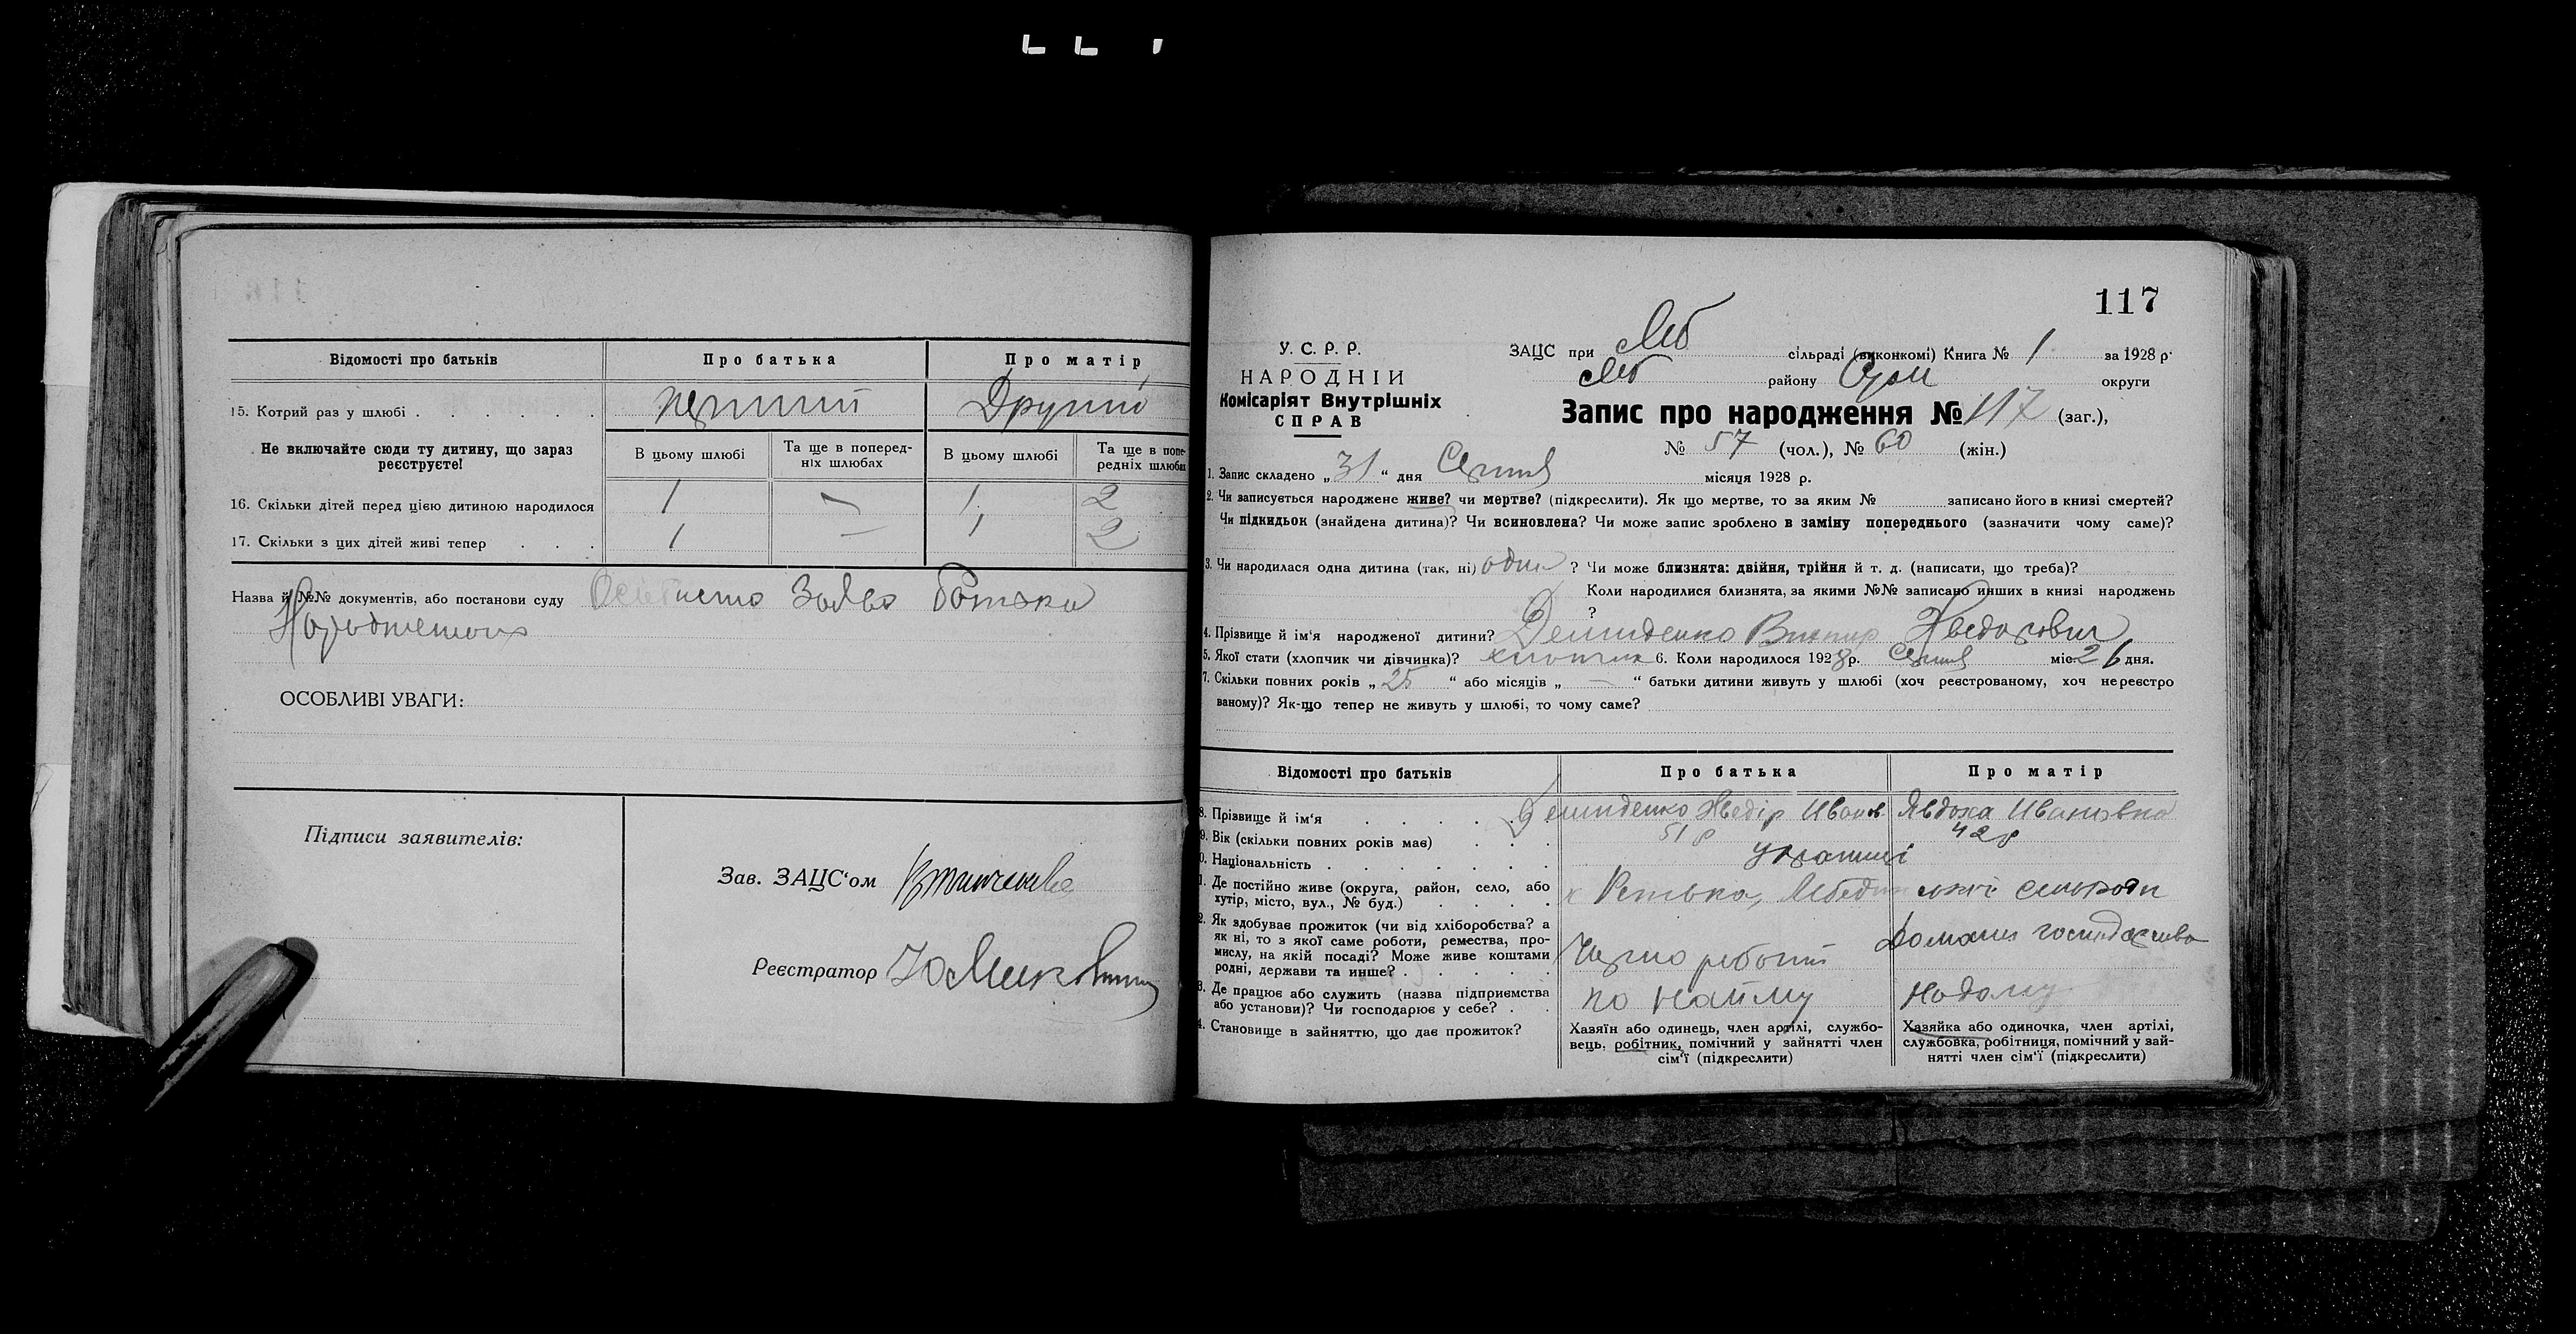 Відомості про батьків Про батька Про матір
15. Котрий раз у шлюбі . . . . . . перший Другий
Не включайте сюди ту дитину, що зараз реєструєте!
В цьому шлюбі Та ще в попередніх шлюбах В цьому шлюбі Та ще в попередніх шлюбах
16. Скільки дітей перед цією дитиною народилося 1 — 1 2
17. Скільки з цих дітей живі тепер . . . 1 — 1 2
Назва й №№ документів, або постанови суду Заява батька
ОСОБЛИВІ УВАГИ:
Підписи заявителів:
Зав. ЗАЦС‘ом
Реєстратор
117
У. С. Р. Р.
НАРОДНІЙ
Комісаріят Внутрішніх
СПРАВ
ЗАЦС при Леб сільраді (виконкомі) Книга № 1 за 1928 р.
Леб району Сум округи
Запис про народження № 117 (заг.),
№ 57 (чол.), № 60 (жін.)
1. Запис складено „31“ дня Серпня місяця 1928 р.
2. Чи записується народжене живе? чи мертве? (підкреслити). Як що мертве, то за яким № записано його в книзі смертей?
Чи підкидьок (знайдена дитина)? Чи всиновлена? Чи може запис зроблено в заміну попереднього (зазначити чому саме)?
3. Чи народилася одна дитина (так, ні) одна ? Чи може близнята: двійня, трійня й т. д. (написати, що треба)?
Коли народилися близнята, за якими №№ записано инших в книзі народжень
?
4. Прізвище й ім‘я народженої дитини? Демиденко Хведорович
5. Якої стати (хлопчик чи дівчинка)? хлопчик 6. Коли народилося 1928 р. Серпня міс. 26 дня.
7. Скільки повних років „25“ або місяців „—“ батьки дитини живуть у шлюбі (хоч реєстрованому, хоч нереєстро
ваному)? Як-що тепер не живуть у шлюбі, то чому саме?
Відомості про батьків Про батька Про матір
8. Прізвище й ім‘я . . . . . Демиденко Хведір Иванов Явдоха Ивановна
9. Вік (скільки повних років має) . . . 51 р 42 р
0. Національність . . . . . . .
1. Де постійно живе (округа, район, село, або
хутір, місто, вул., № буд.) . . . . х Ретька, сільради
2. Як здобуває прожиток (чи від хліборобства? а
як ні, то з якої саме роботи, ремества, про-
мислу, на якій посаді? Може живе коштами
родні, держави та инше? . . . . .
Чорно роботи Домашн господарство
3. Де працює або служить (назва підприємства
або установи)? Чи господарює у себе? . .
по найму надому
4. Становище в зайняттю, що дає прожиток?
Хазяїн або одинець, член артілі, службо-
вець, робітник, помічний у зайнятті член
сім‘ї (підкреслити)
Хазяйка або одиночка, член артілі,
службовка, робітниця, помічний у зай-
нятті член сім‘ї (підкреслити)